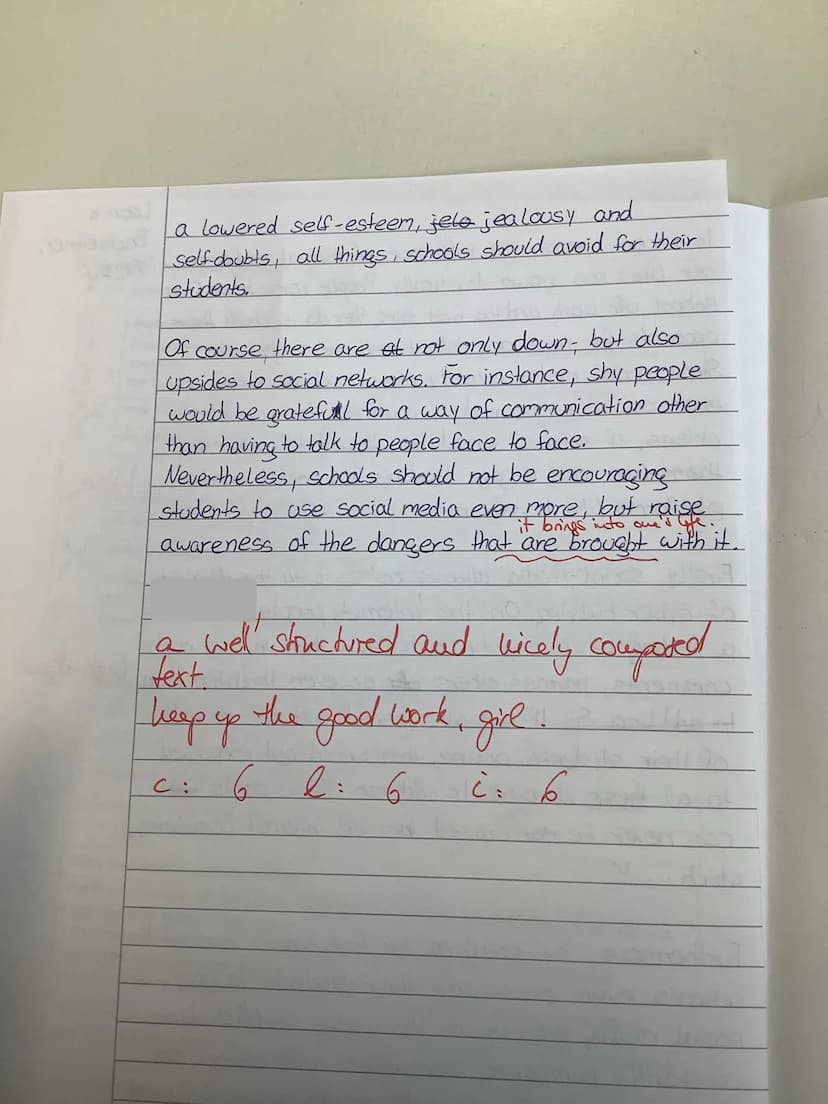 a lowered self-esteem, jelo jealousy and
self-doubts, all things, schools should avoid for their
students.
Of course, there are at not only down-, but also
upsides to social networks. For instance, shy people
would be gratefull for a way of communication other
than having to talk to people face to face.
Nevertheless, schools should not be encouraging
students to use social media even more, but raise
it brings into one's life.
awareness of the dangers that are brought with it.
a well structured and nicely composed
text.
keep up the good work, girl!
c: 6 l: 6 i: 6